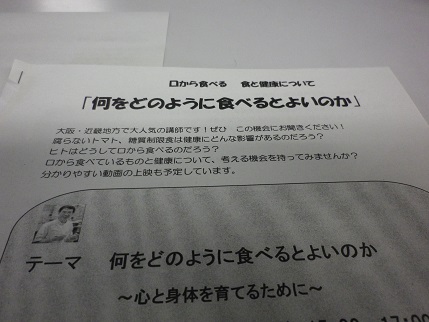 口から食べる 食と健康について
「何をどのように食べるとよいのか」
大阪・近畿地方で大人気の講師です！ぜひ この機会にお聞きください！
腐らないトマト、糖質制限食は健康にどんな影響があるのだろう？
ヒトはどうして口から食べるのだろう？
口から食べているものと健康について、考える機会を持ってみませんか？
分かりやすい動画の上映も予定しています。
テーマ 何をどのように食べるとよいのか
～心と身体を育てるために～